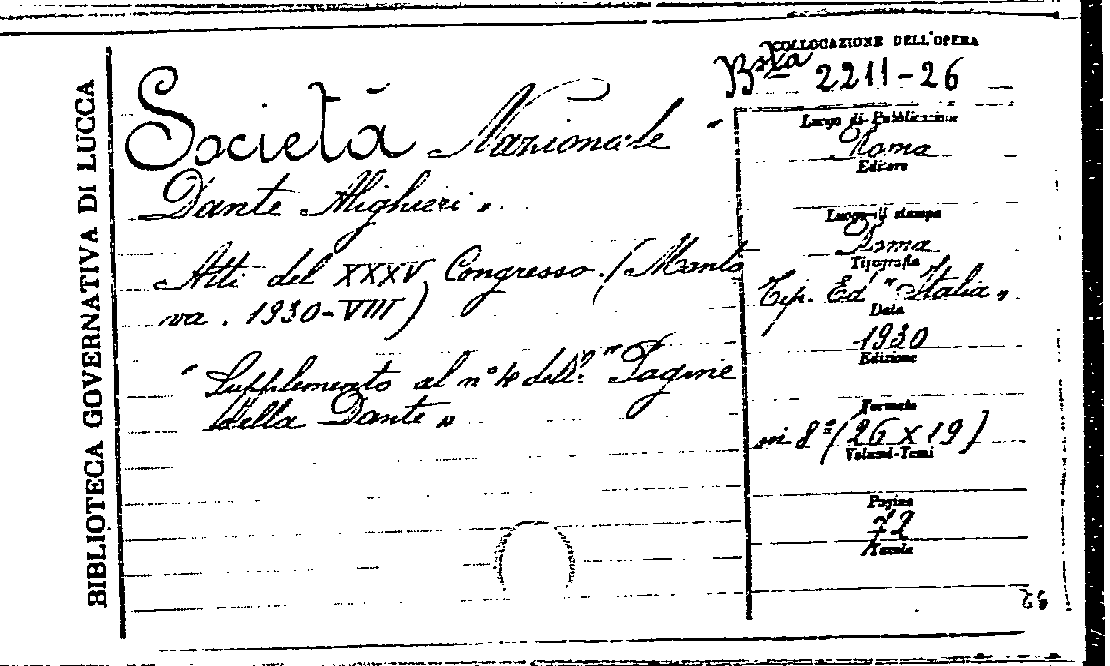 BIBLIOTECA GOVERNATIVA DI LUCCA
Società Nazionale "
Dante Alighieri "
Atti del XXXV Congresso. (Manto
va. 1930-VIII)
" Supplemento al n° 4 delle "Pagine
della Dante"
COLLOCAZIONE DELL'OPERA
Bta 2211-26
Luogo di Pubblicazione
Roma
Editore
Luogo di stampa
Roma
Tipografia
Tip. Ed "Italia"
Data
1930
Edizione
Formato
in 8° (26 x 19)
Volumi-Tomi
Pagine
72
Tavole